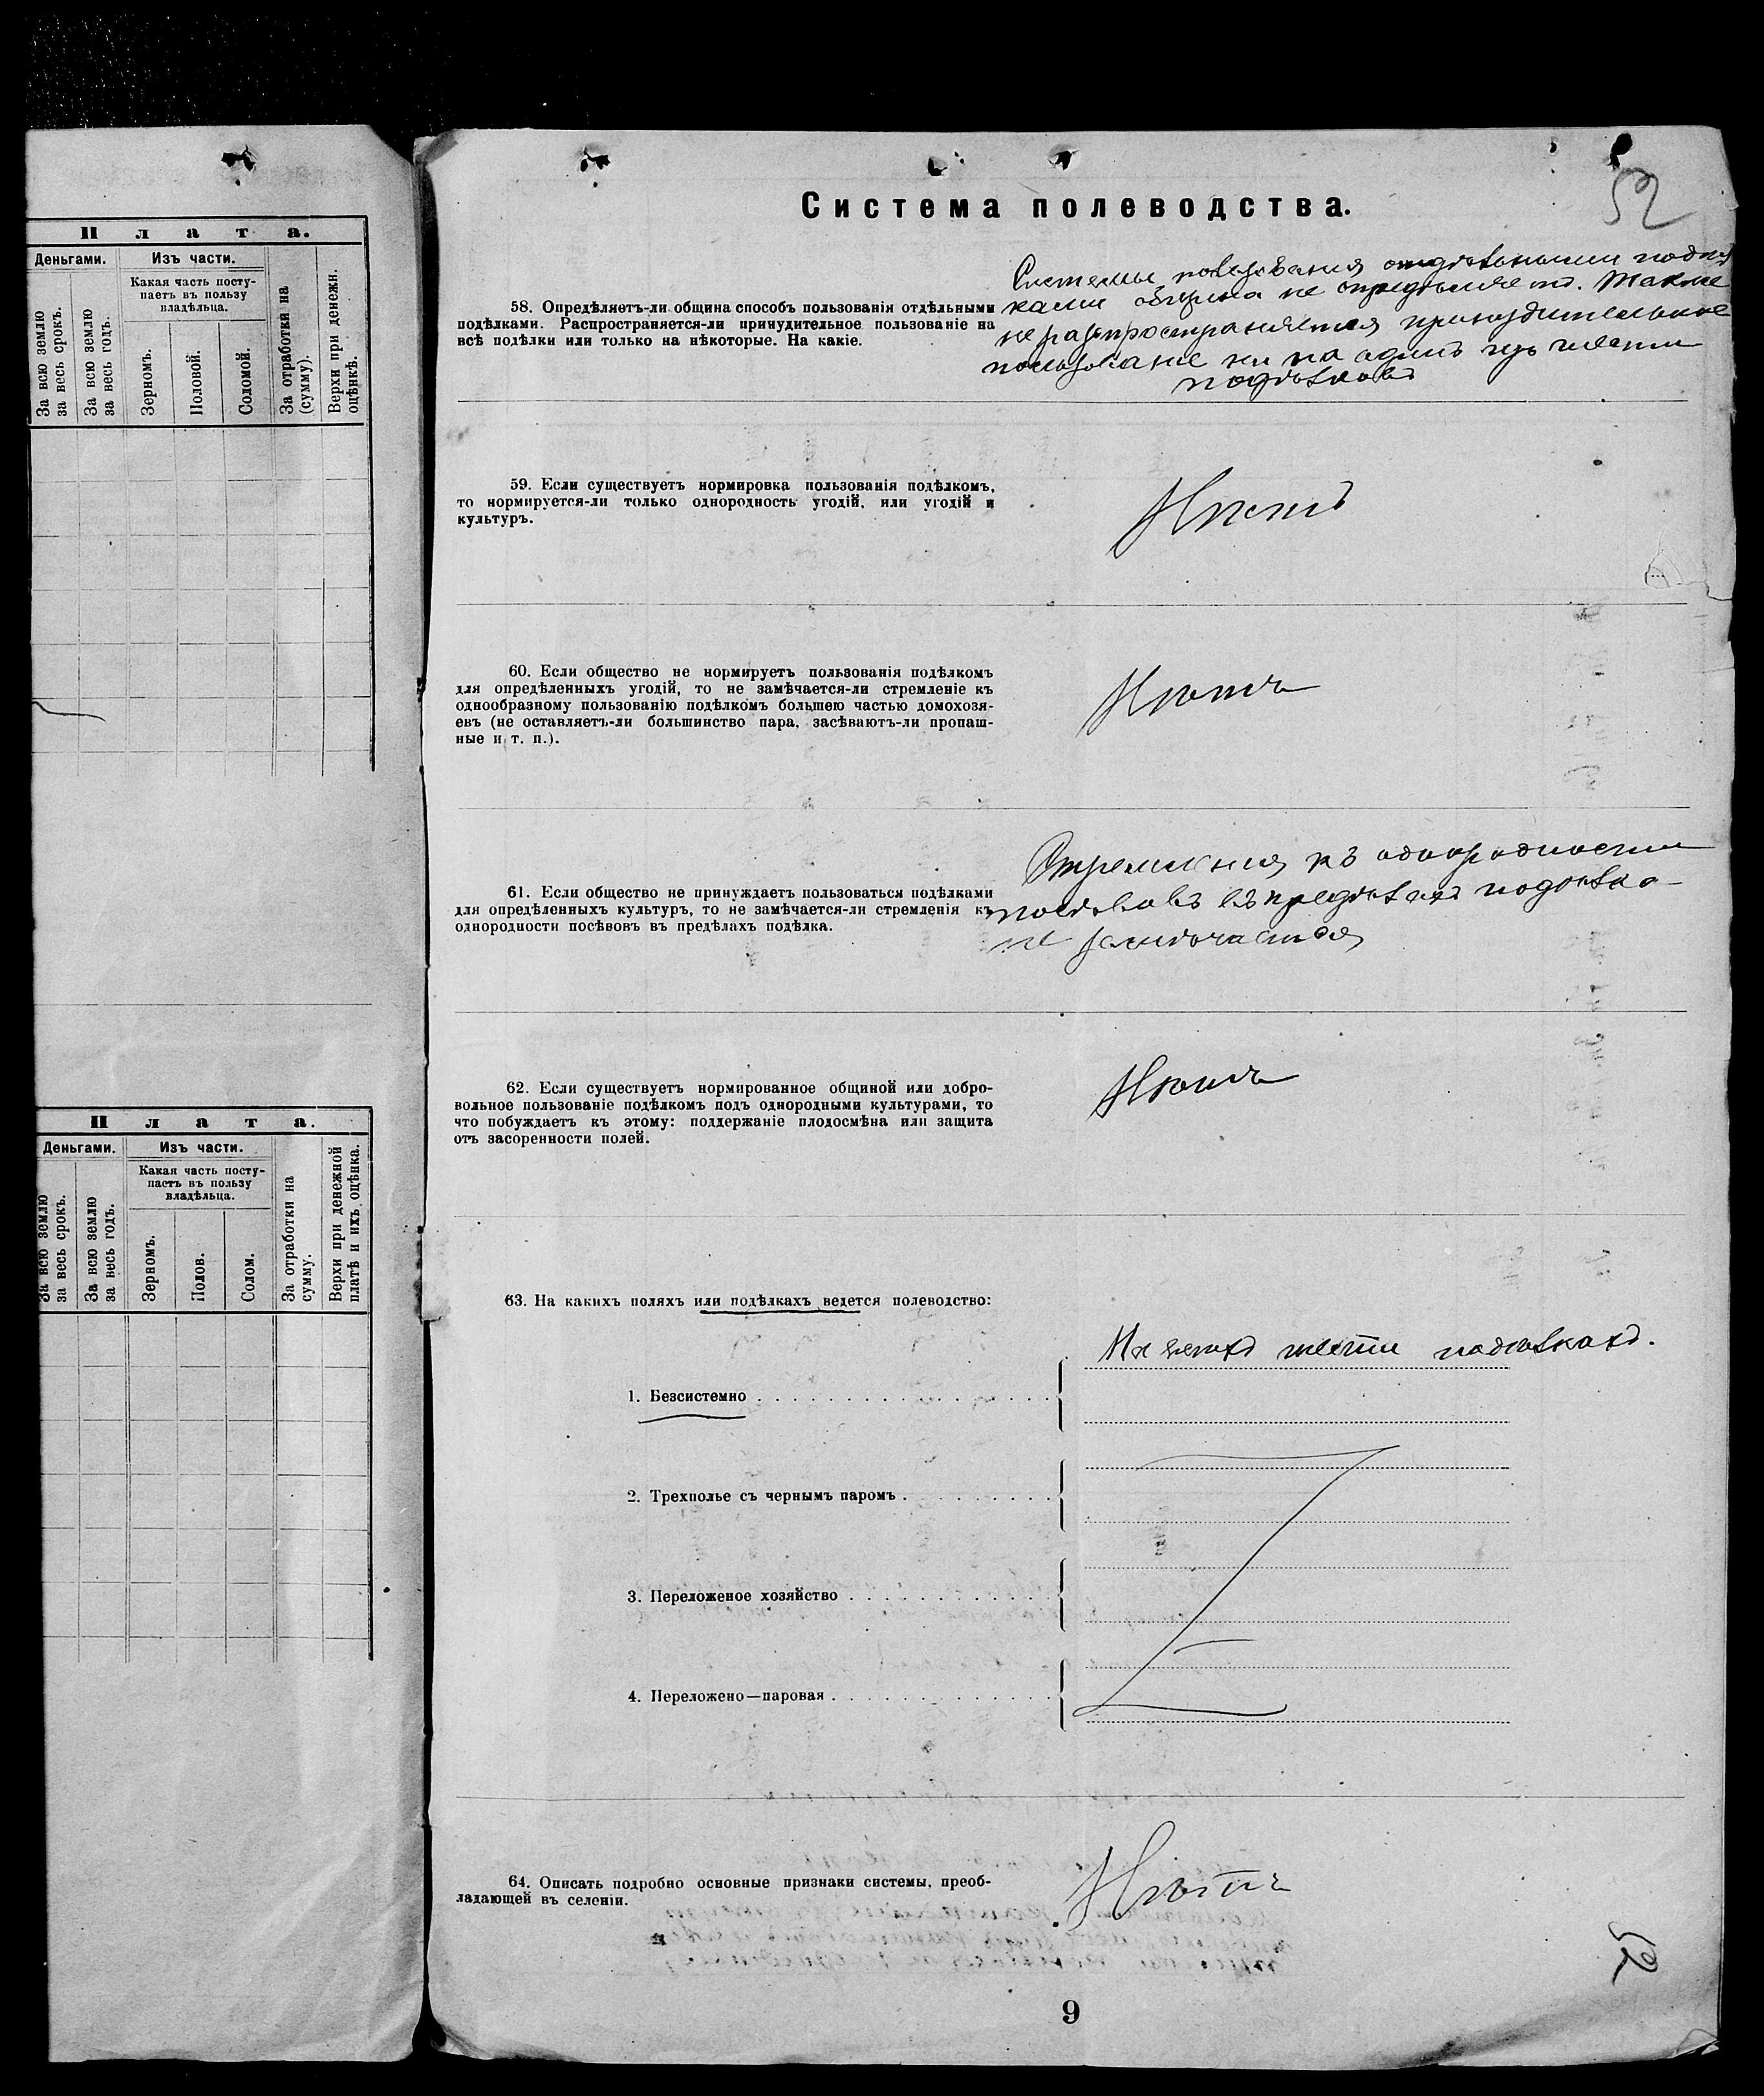 П л а т а.
Деньгами.
Изъ части.
Какая часть посту-
паетъ въ пользу
владѣльца.
За всю землю
за весь срокъ.
За всю землю
за весь годъ.
Зерномъ.
Половой.
Соломой.
За отработки на
(сумму).
Верхи при денежн.
оцѣнкѣ.
П л а т а.
Деньгами.
Изъ части.
Какая часть посту-
паетъ въ пользу
владѣльца.
За всю землю
за весь срокъ.
За всю землю
за весь годъ.
Зерномъ.
Полов.
Солом.
За отработки на
сумму.
Верхи при денежной
платѣ и ихъ оцѣнка.
52
Система полеводства.
58. Опредѣляетъ-ли община способъ пользованія отдѣльными
подѣлками. Распространяется-ли принудительное пользованіе на
всѣ подѣлки или только на нѣкоторые. На какіе.
Системы пользованія отдѣльными подѣл
ками община не опредѣляетъ. Также
не распространяется принудительное
пользованіе ни на одинъ изъ шести
подѣлковъ
59. Если существуетъ нормировка пользованія подѣлкомъ,
то нормируется-ли только однородность угодій, или угодій и
культуръ.
Нѣтъ
60. Если общество не нормируетъ пользованія подѣлкомъ
для опредѣленныхъ угодій, то не замѣчается-ли стремленіе къ
однообразному пользованію подѣлкомъ большею частью домохозя-
евъ (не оставляетъ-ли большинство пара, засѣваютъ-ли пропаш-
ные и т. п.).
Нѣтъ
61. Если общество не принуждаетъ пользоваться подѣлками
для опредѣленныхъ культуръ, то не замѣчается-ли стремленія къ
однородности посѣвовъ въ предѣлахъ подѣлка.
Стремленія къ однородности
посѣвовъ въ предѣлахъ подѣлка
не замѣчается
62. Если существуетъ нормированное общиной или добро-
вольное пользованіе подѣлкомъ подъ однородными культурами, то
что побуждаетъ къ этому: поддержаніе плодосмѣна или защита
отъ засоренности полей.
Нѣтъ
63. На какихъ поляхъ или подѣлкахъ ведется полеводство:
На всѣхъ шести подѣлкахъ.
1. Безсистемно
2. Трехполье съ чернымъ паромъ
3. Переложеное хозяйство
4. Переложено—паровая
64. Описать подробно основные признаки системы, преоб-
ладающей въ селеніи.
Нѣтъ
9